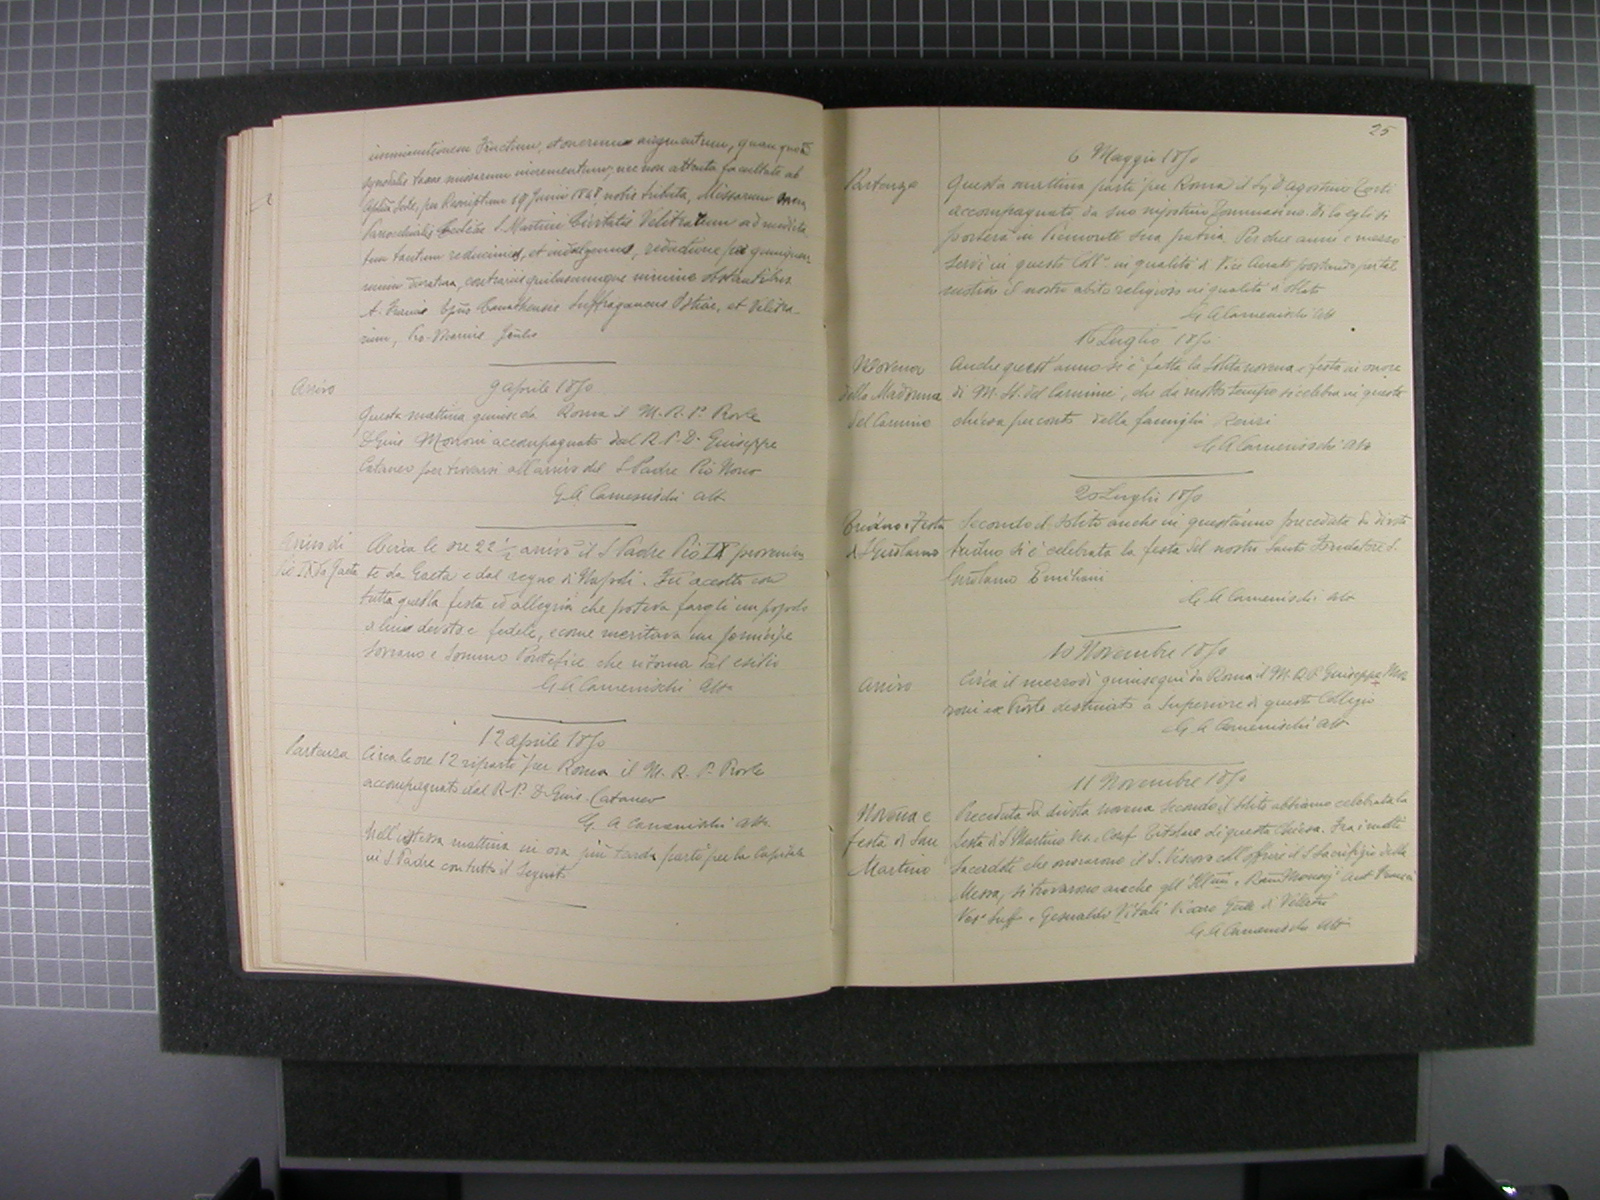 imminutionem fructuum, et onerum augmentum, quam quoad
synodalis taxae missarum incrementum, nec non attenta facultate ab
Aplica Sede, per Rescriptum 19 Junii 1848 nobis tributa, Missarum onera
Parrocchialis Ecclesiae S. Martini Civitatis Velitrarum ad medieta
tem tantum reducimus, et indulgemus, reductione per quinquen
nium duratura, contrariis quibuscumque minime obstantibus
A. Epus Suffraganeus Ostiae, et Velitra-
rum,
Arrivo
9 aprile 1850
Questa mattina giunse da Roma il M. R. P. Prvle
D Gius Morroni accompagnato dal R. P. D. Giuseppe
Cataneo per trovarsi all'arrivo del S Padre Pio Nono
G. A Camenischi Att.
Arrivo di
Pio IX da Gaeta
Circa le ore 22 1/2 arrivò il S Padre Pio IX provenien
te da Gaeta e dal regno di Napoli. Fu accolto con
tutta quella festa ed allegria che poteva fargli un popolo
a lui devoto e fedele, e come meritava un principe
Sovrano e Sommo Pontefice che ritorna dal esilio
G A Camenischi Att.
12 aprile 1850
Partenza
Circa le ore 12 ripartò per Roma il M. R. P. Prvle
accompagnato dal R. P. D. Gius. Cataneo
G. A Camenischi Att.
Nell'istessa mattina in ora più tarda partò per la Capitale
il S. Padre con tutto il Seguito
25
6 Maggio 1850
Partenza
Questa mattina partì per Roma il Sigr D Agostino Conti
accompagnato da suo nipotino Tommasino. Di là egli si
porterà in Piemonte sua patria. Per due anni e mezzo
servì in questo Collo in qualità di Vice Curato portando per tal
motivo il nostro abito religioso in qualità d'oblato
G A Camenischi Att
16 Luglio 1850
Novena
della Madonna
del Carmine
Anche quest'anno si è fatta la solita novena e festa in onore
di M. SS. del Carmine, che da molto tempo si celebra in questa
chiesa per conto della famiglia Renzi
G A Camenischi Att
20 Luglio 1850
Triduo e Festa
di S Girolamo
Secondo il solito anche in quest'anno preceduta da divoto
triduo si è celebrata la festa del nostro Santo Fondatore S.
Girolamo Emiliani
G A Camenischi Att
10 Novembre 1850
Arrivo
Circa il mezzodì giunse qui da Roma il M. R. P. Giuseppe Mor
roni ex Prvle destinato a Superiore di questo Collegio
G A Camenischi Att
11 Novembre 1850
Novena e
festa di San
Martino
Preceduta da divota novena secondo il solito abbiamo celebrata la
festa di S Martino Ves. e Conf Titolare di questa Chiesa. Fra i molti
Sacerdoti che onorarono il S. Vescovo coll'offrire il S Sacrifizio della
Messa, si trovarono anche gl'Illmi e Rmi Monsigi
Vesº Suff. e Gesualdo Vitali Vicario Gnle di Velletri
G A Camenischi Att